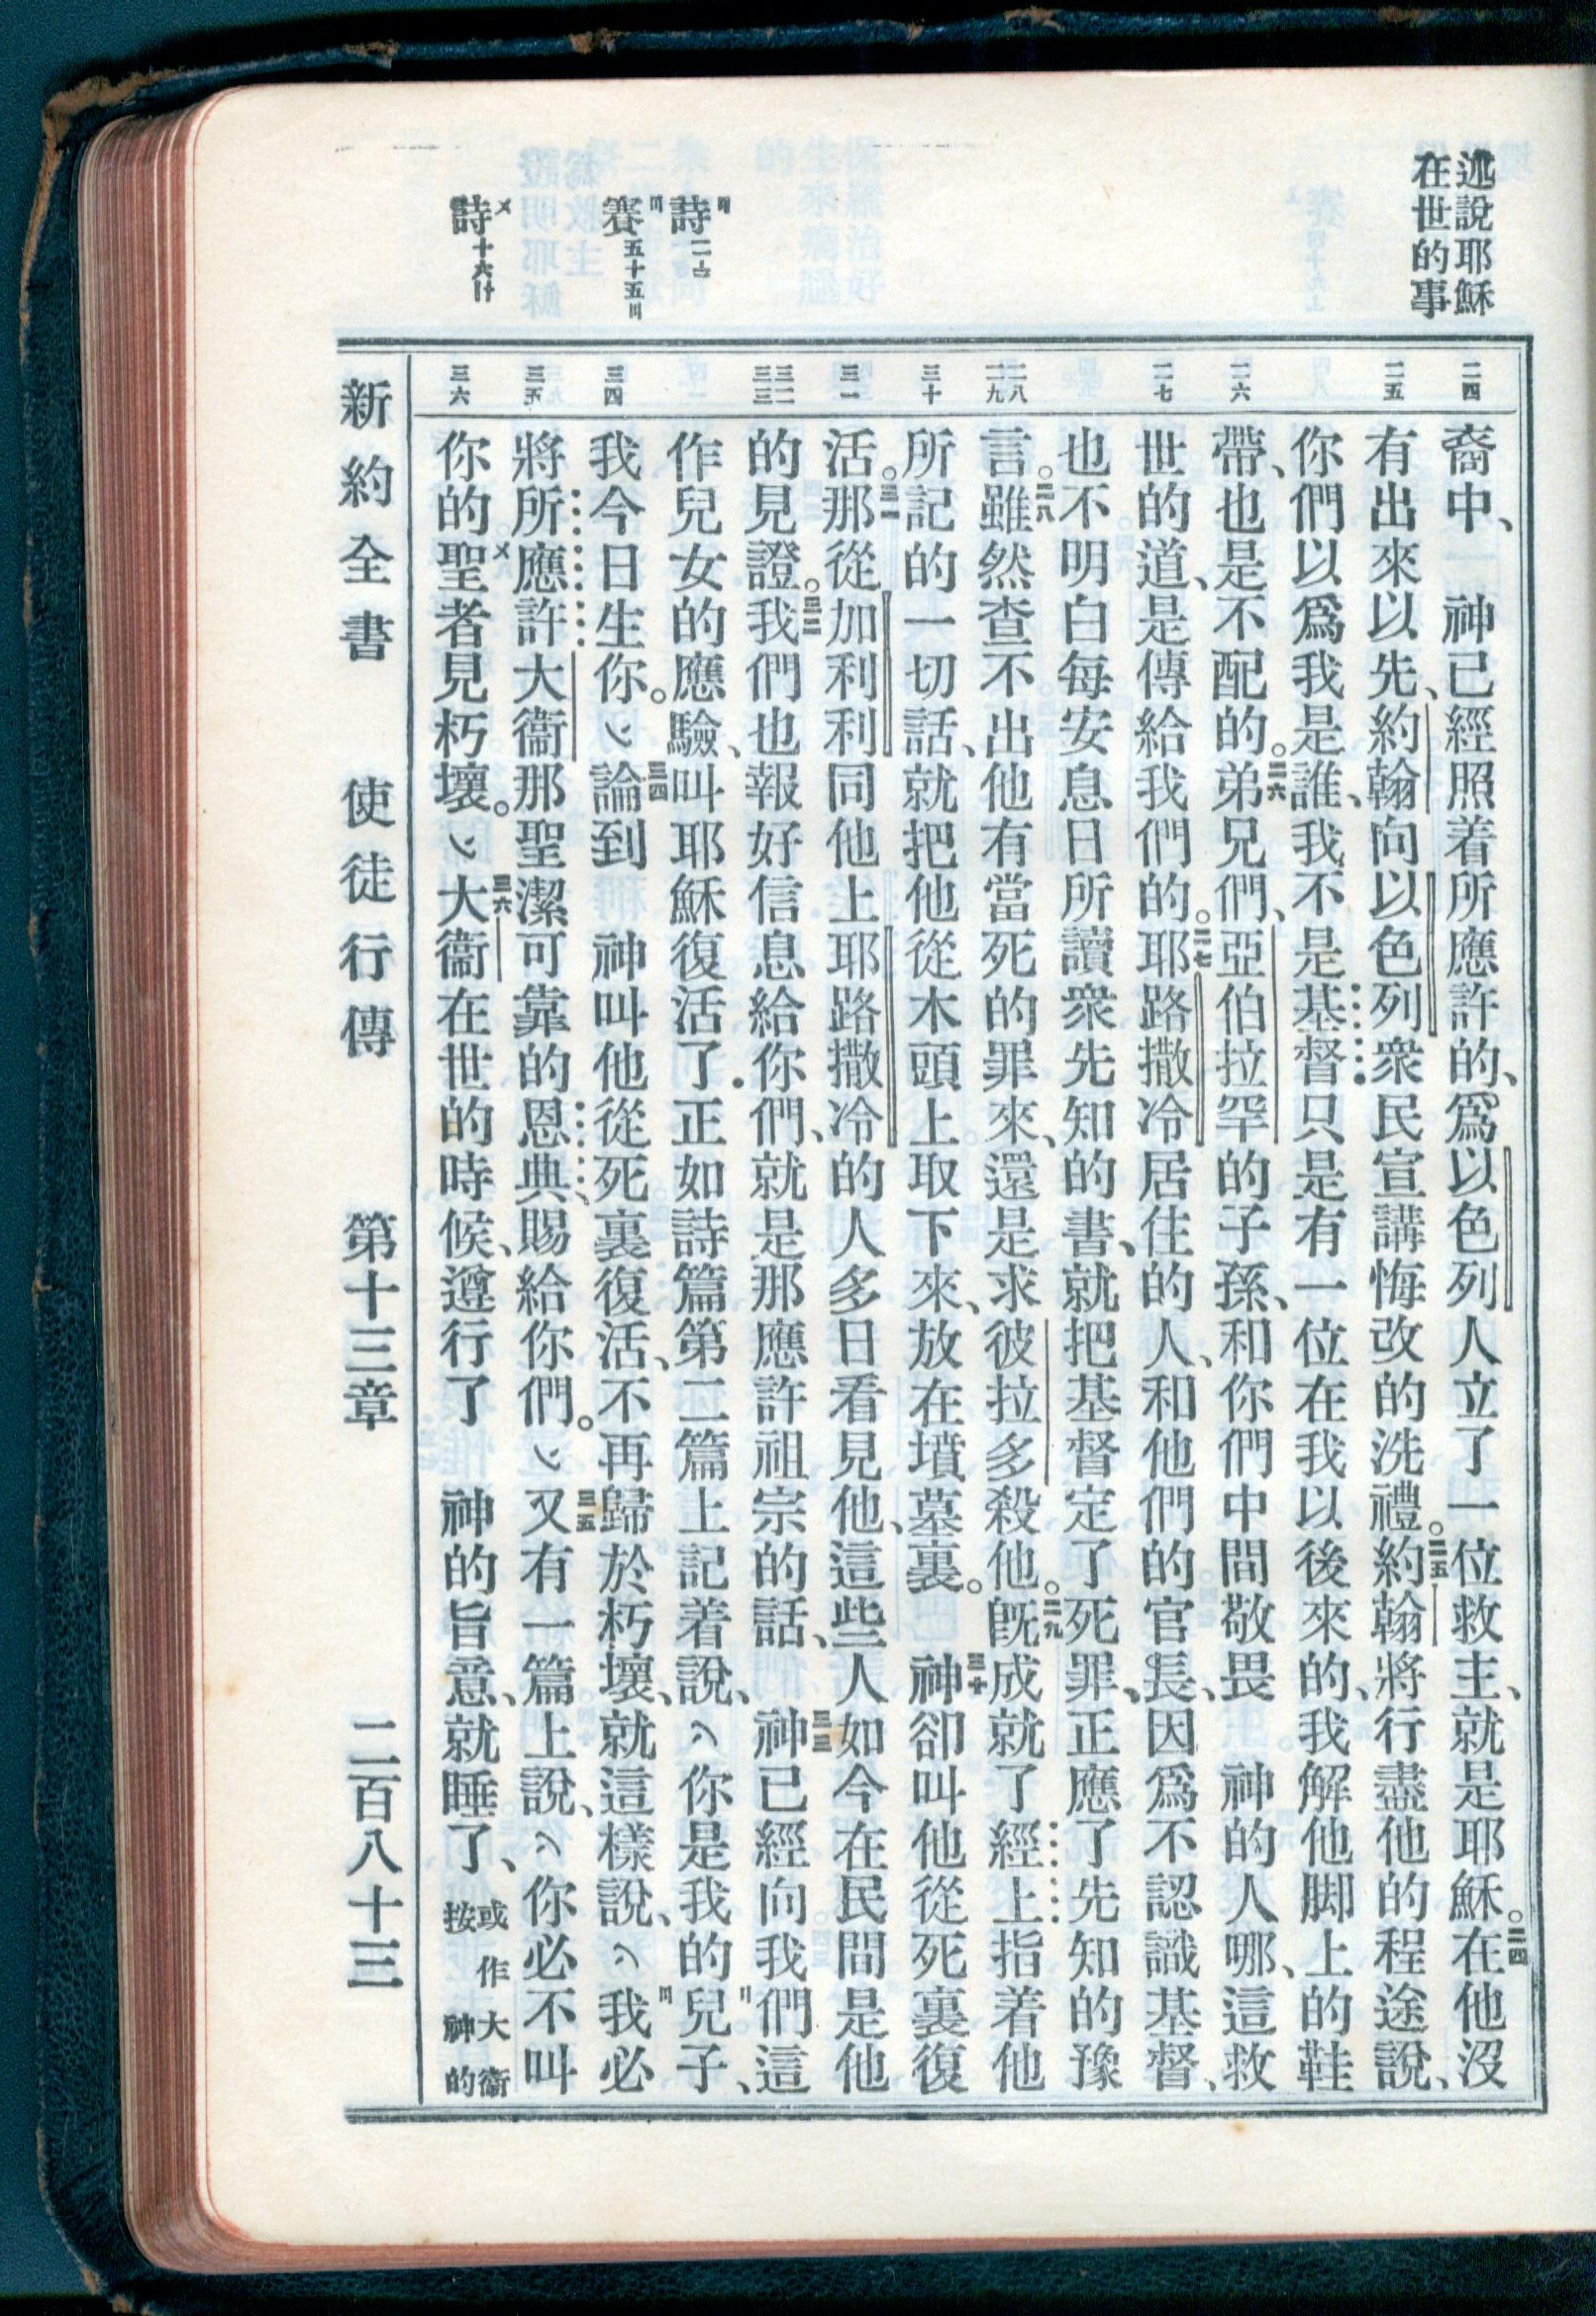 述說耶穌
在世的事
詩二
賽五十五
詩十六
二四
二五
二六
二七
二八
二九
三十
三一
三二
三三
三四
三五
三六
裔中、　神已經照着所應許的、爲以色列人立了一位救主、就是耶穌。二四在他沒
有出來以先、約翰向以色列衆民宣講悔改的洗禮。二五約翰將行盡他的程途說、
你們以爲我是誰、我不是基督只是有一位在我以後來的、我解他脚上的鞋
帶、也是不配的。二六弟兄們、亞伯拉罕的子孫、和你們中間敬畏　神的人哪、這救
世的道、是傳給我們的。二七耶路撒冷居住的人、和他們的官長、因爲不認識基督、
也不明白每安息日所讀衆先知的書、就把基督定了死罪、正應了先知的豫
言。二八雖然查不出他有當死的罪來、還是求彼拉多殺他。二九旣成就了經上指着他
所記的一切話、就把他從木頭上取下來、放在墳墓裏。三十　神卻叫他從死裏復
活。三一那從加利利同他上耶路撒冷的人多日看見他、這些人如今在民間是他
的見證。三二我們也報好信息給你們、就是那應許祖宗的話、三三　神已經向我們這
作兒女的應驗、叫耶穌復活了．正如詩篇第二篇上記着說、〝你是我的兒子、
我今日生你。〞三四論到　神叫他從死裏復活、不再歸於朽壞、就這樣說、〝我必
將所應許大衞那聖潔可靠的恩典、賜給你們。〞三五又有一篇上說、〝你必不叫
你的聖者見朽壞。〞三六大衞在世的時候、遵行了　神的旨意、就睡了、或作大衞按　神的
新約全書　使徒行傳　第十三章　二百八十三